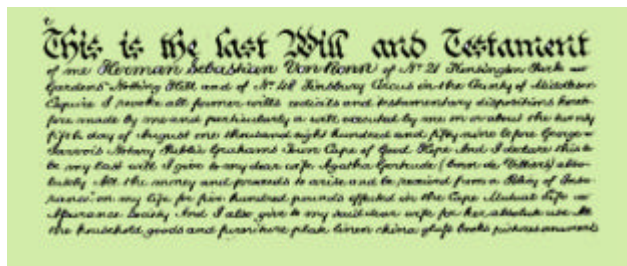 This is the last Will and Testament
of me Herman Sebastian Von Ronn of No 21 Kensington Park
Gardens Notting Hill and of No 48 Finsbury Circus in the County of Middlesex
Esquire I revoke all former wills codicils and testamentary dispositions hereto-
fore made by me and particularly a will executed by me on or about the twenty
fifth day of August one thousand eight hundred and fifty nine before George
Notary Public Grahams Town Cape of Good Hope And I declare this to
be my last will I give to my dear wife Agatha Gertrude (born de Villiers) abso-
lutely All the money and proceeds to arise and be received from a Policy of Insu-
rance on my life for five hundred pounds effected in the Cape Mutual Life
Assurance Society And I also give to my said dear wife for her absolute use All
the household goods and furniture plate linen china glass books pictures